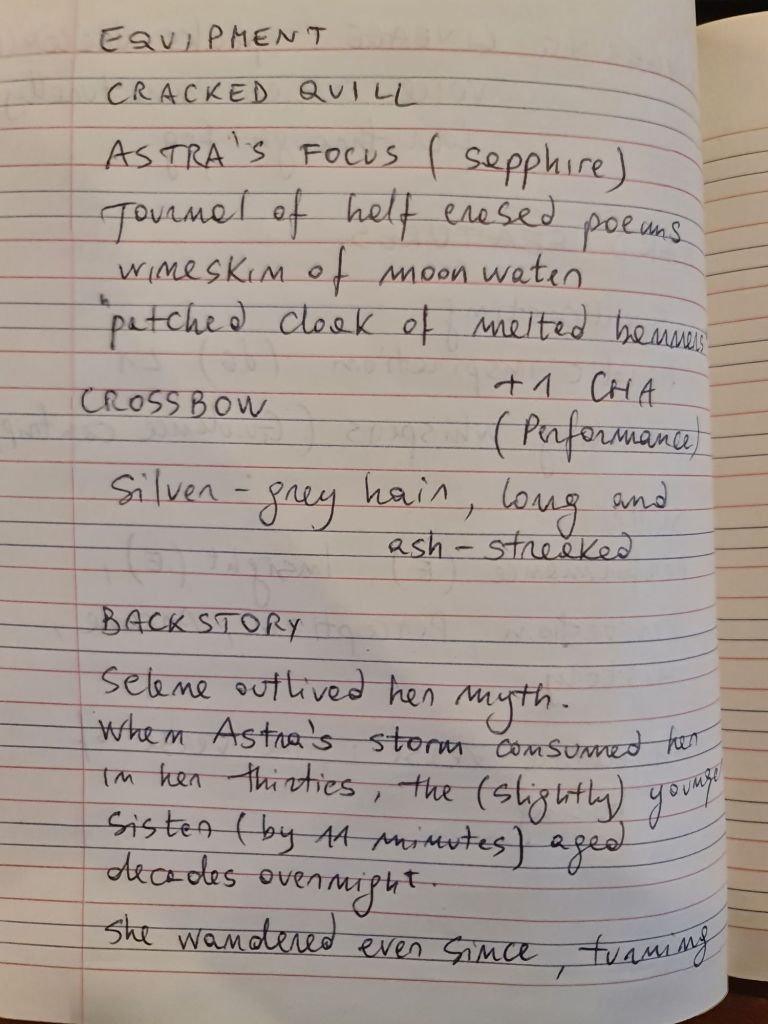 EQUIPMENT
CRACKED QUILL
ASTRA'S FOCUS (sapphire)
Journal of half erased poems
wineskin of moon water
"patched cloak of melted banners
+1 CHA
CROSSBOW
(Performance)
Silver-grey hair, long and
ash-streaked
BACKSTORY
Selene outlived her myth.
When Astra's storm consumed her
in her thirties, the (slightly) younge
sister (by 11 minutes) aged
decades overnight.
She wandered ever since, turning